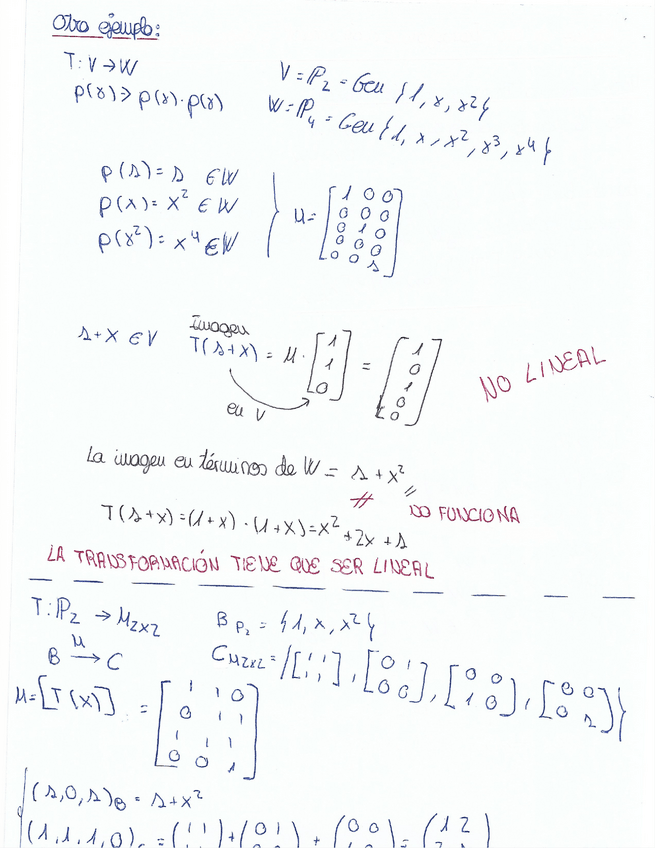 Otro ejemplo:
T: V → W
p(x) → p(x)·p(x)
V = P₂ = Gen {1, x, x²}
W = P₄ = Gen {1, x, x², x³, x⁴}
p(1) = 1 ∈ W
p(x) = x² ∈ W
p(x²) = x⁴ ∈ W
M =
1 0 0
0 0 0
0 1 0
0 0 0
0 0 1
1+x ∈ V
Imagen
T(1+x) = M · [1 1 0] = [1 0 1 0 0]
en V
NO LINEAL
La imagen en términos de W = 1 + x²
T(1+x) = (1+x) · (1+x) = x² + 2x + 1
NO FUNCIONA
LA TRANSFORMACIÓN TIENE QUE SER LINEAL
T: P₂ → M₂ₓ₂
B P₂ = {1, x, x²}
B →M C
C M₂ₓ₂ = {[1 1; 1 1], [0 1; 0 0], [0 0; 1 0], [0 0; 0 1]}
M = [T(x)] =
1 1 0
0 1 1
1 1 1
0 0 1
(1,0,1)B = 1+x²
(1,1,1,0) = (1 1) + (0 1) + (0 0) = (1 2)